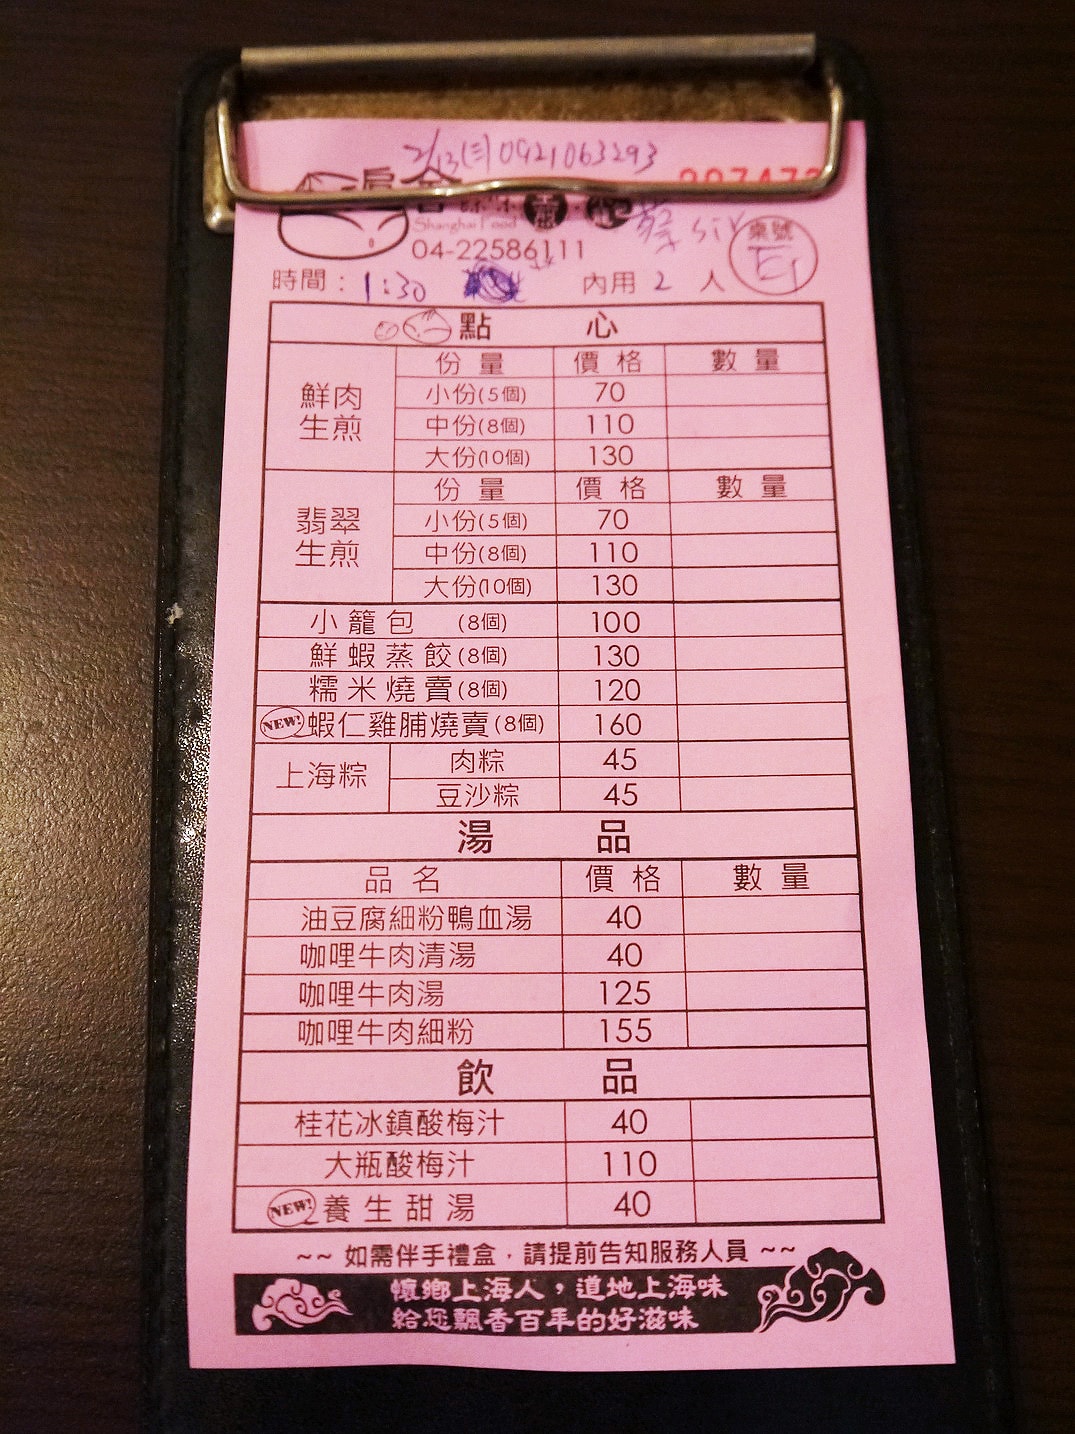 2/13(三) 0921063293
Shanghai Food
04-22586111
桌號
E1
時間：1:30 內用 2 人
點心
鮮肉生煎
份量 價格 數量
小份(5個) 70
中份(8個) 110
大份(10個) 130
翡翠生煎
份量 價格 數量
小份(5個) 70
中份(8個) 110
大份(10個) 130
小籠包 (8個) 100
鮮蝦蒸餃(8個) 130
糯米燒賣(8個) 120
NEW! 蝦仁雞脯燒賣(8個) 160
上海粽
肉粽 45
豆沙粽 45
湯品
品名 價格 數量
油豆腐細粉鴨血湯 40
咖哩牛肉清湯 40
咖哩牛肉湯 125
咖哩牛肉細粉 155
飲品
桂花冰鎮酸梅汁 40
大瓶酸梅汁 110
NEW! 養生甜湯 40
~~ 如需伴手禮盒，請提前告知服務人員 ~~
懷鄉上海人，道地上海味
給您飄香百年的好滋味